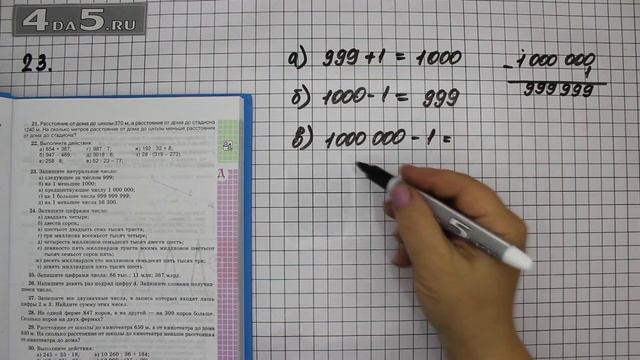 4DA5.RU
23.
а) 999 + 1 = 1000
б) 1000 - 1 = 999
в) 1000 000 - 1 =
- 1000 000
1
999 999
21. Расстояние от дома до школы 370 м, а расстояние от дома до стадиона
1240 м. На сколько метров расстояние от дома до школы меньше расстояния
от дома до стадиона?
22. Выполните действия:
а) 654 + 367; г) 987 : 7; ж) 192 : 32 + 8;
23. Запишите натуральное число:
а) следующее за числом 999;
б) на 1 меньшее 1000;
в) предшествующее числу 1 000 000;
г) на 1 большее числа 999 999 999;
д) на 1 меньшее числа 56 300.
24. Запишите цифрами число:
а) двадцать четыре;
б) двести сорок;
в) шестьсот двадцать семь тысяч триста;
г) три миллиона восемьсот тысяч четыре;
д) четыреста миллионов семьдесят тысяч двести шесть;
е) девяносто пять миллиардов триста восемь миллионов шестьсот
тысяч семьсот сорок пять;
ж) десять миллиардов сто миллионов семьдесят пять тысяч три;
з) девять миллиардов пять тысяч шесть.
25. Запишите цифрами числа: 86 тыс.; 11 млн; 367 млрд.
26. Напишите девять раз подряд цифру 4. Запишите словами получив-
шееся число.
27. Запишите все двузначные числа, в запись которых входят лишь
цифры 2 и 3. Найдите сумму этих чисел.
28. На одной ферме 847 коров, а на другой — на 309 коров больше.
Сколько коров на двух фермах?
29. Расстояние от школы до кинотеатра 650 м, а от кинотеатра до дома
30. Выполните действия:
а) 245 + 35 · 18; в) 10 260 : 36 + 164;